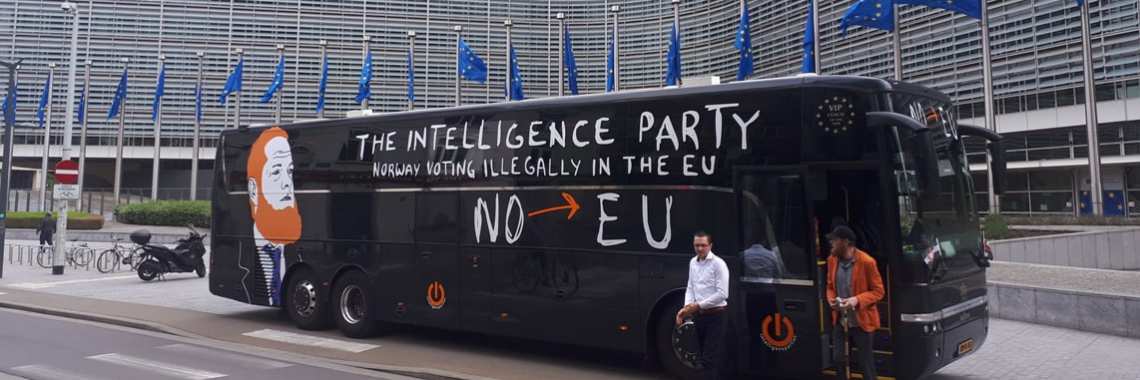 THE INTELLIGENCE PARTY
NORWAY VOTING ILLEGALLY IN THE EU
NO → EU
VIP